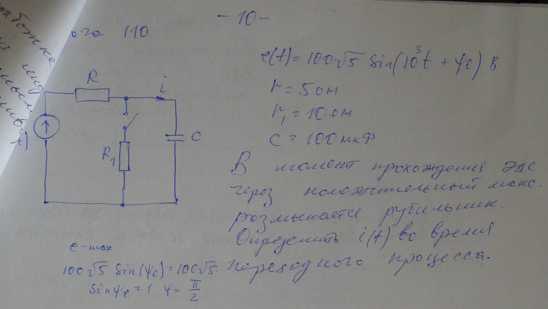 -10-
110
e(t) = 100√5 Sin(10³t + φe) В
r = 5 ом
r₁ = 10 ом
C = 100 мкФ
В момент прохождения ЭДС
через положительный макс.
размыкается рубильник.
Определить i(t) во время
переходного процесса.
R
i
R₁
C
e-max
100√5 Sin(φe) = 100√5
Sinφe = 1 φ = π/2